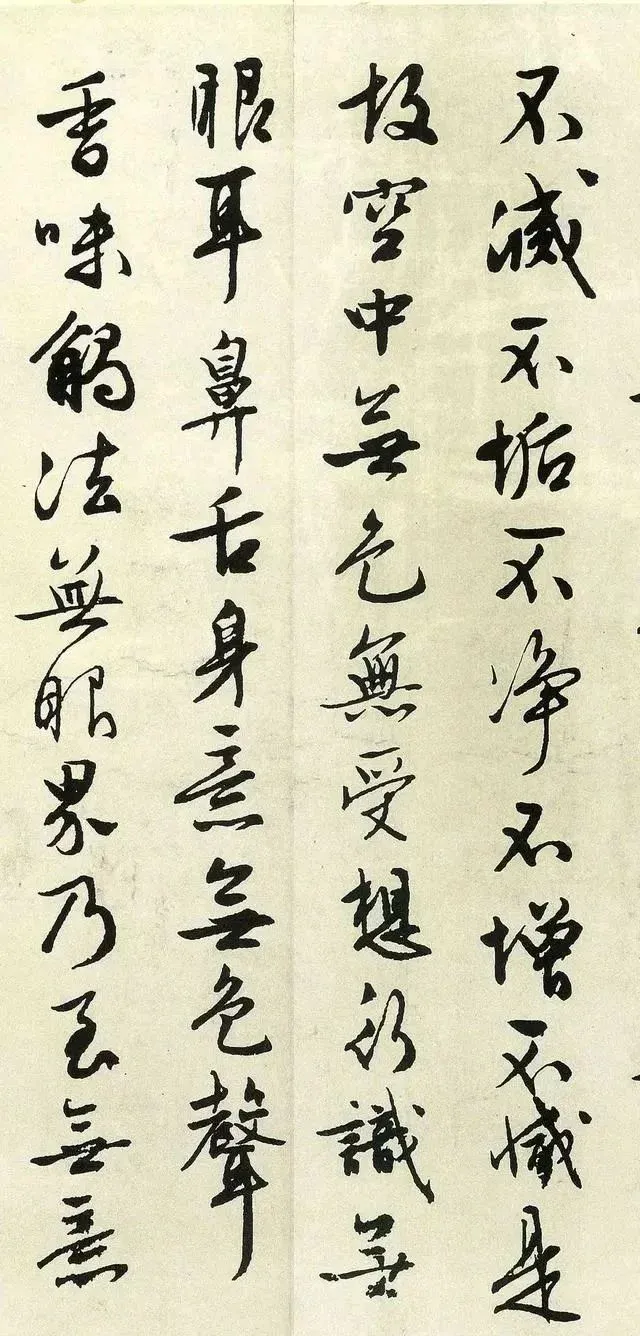 不滅不垢不淨不增不減是
故空中無色無受想行識無
眼耳鼻舌身意無色聲
香味觸法無眼界乃至無意